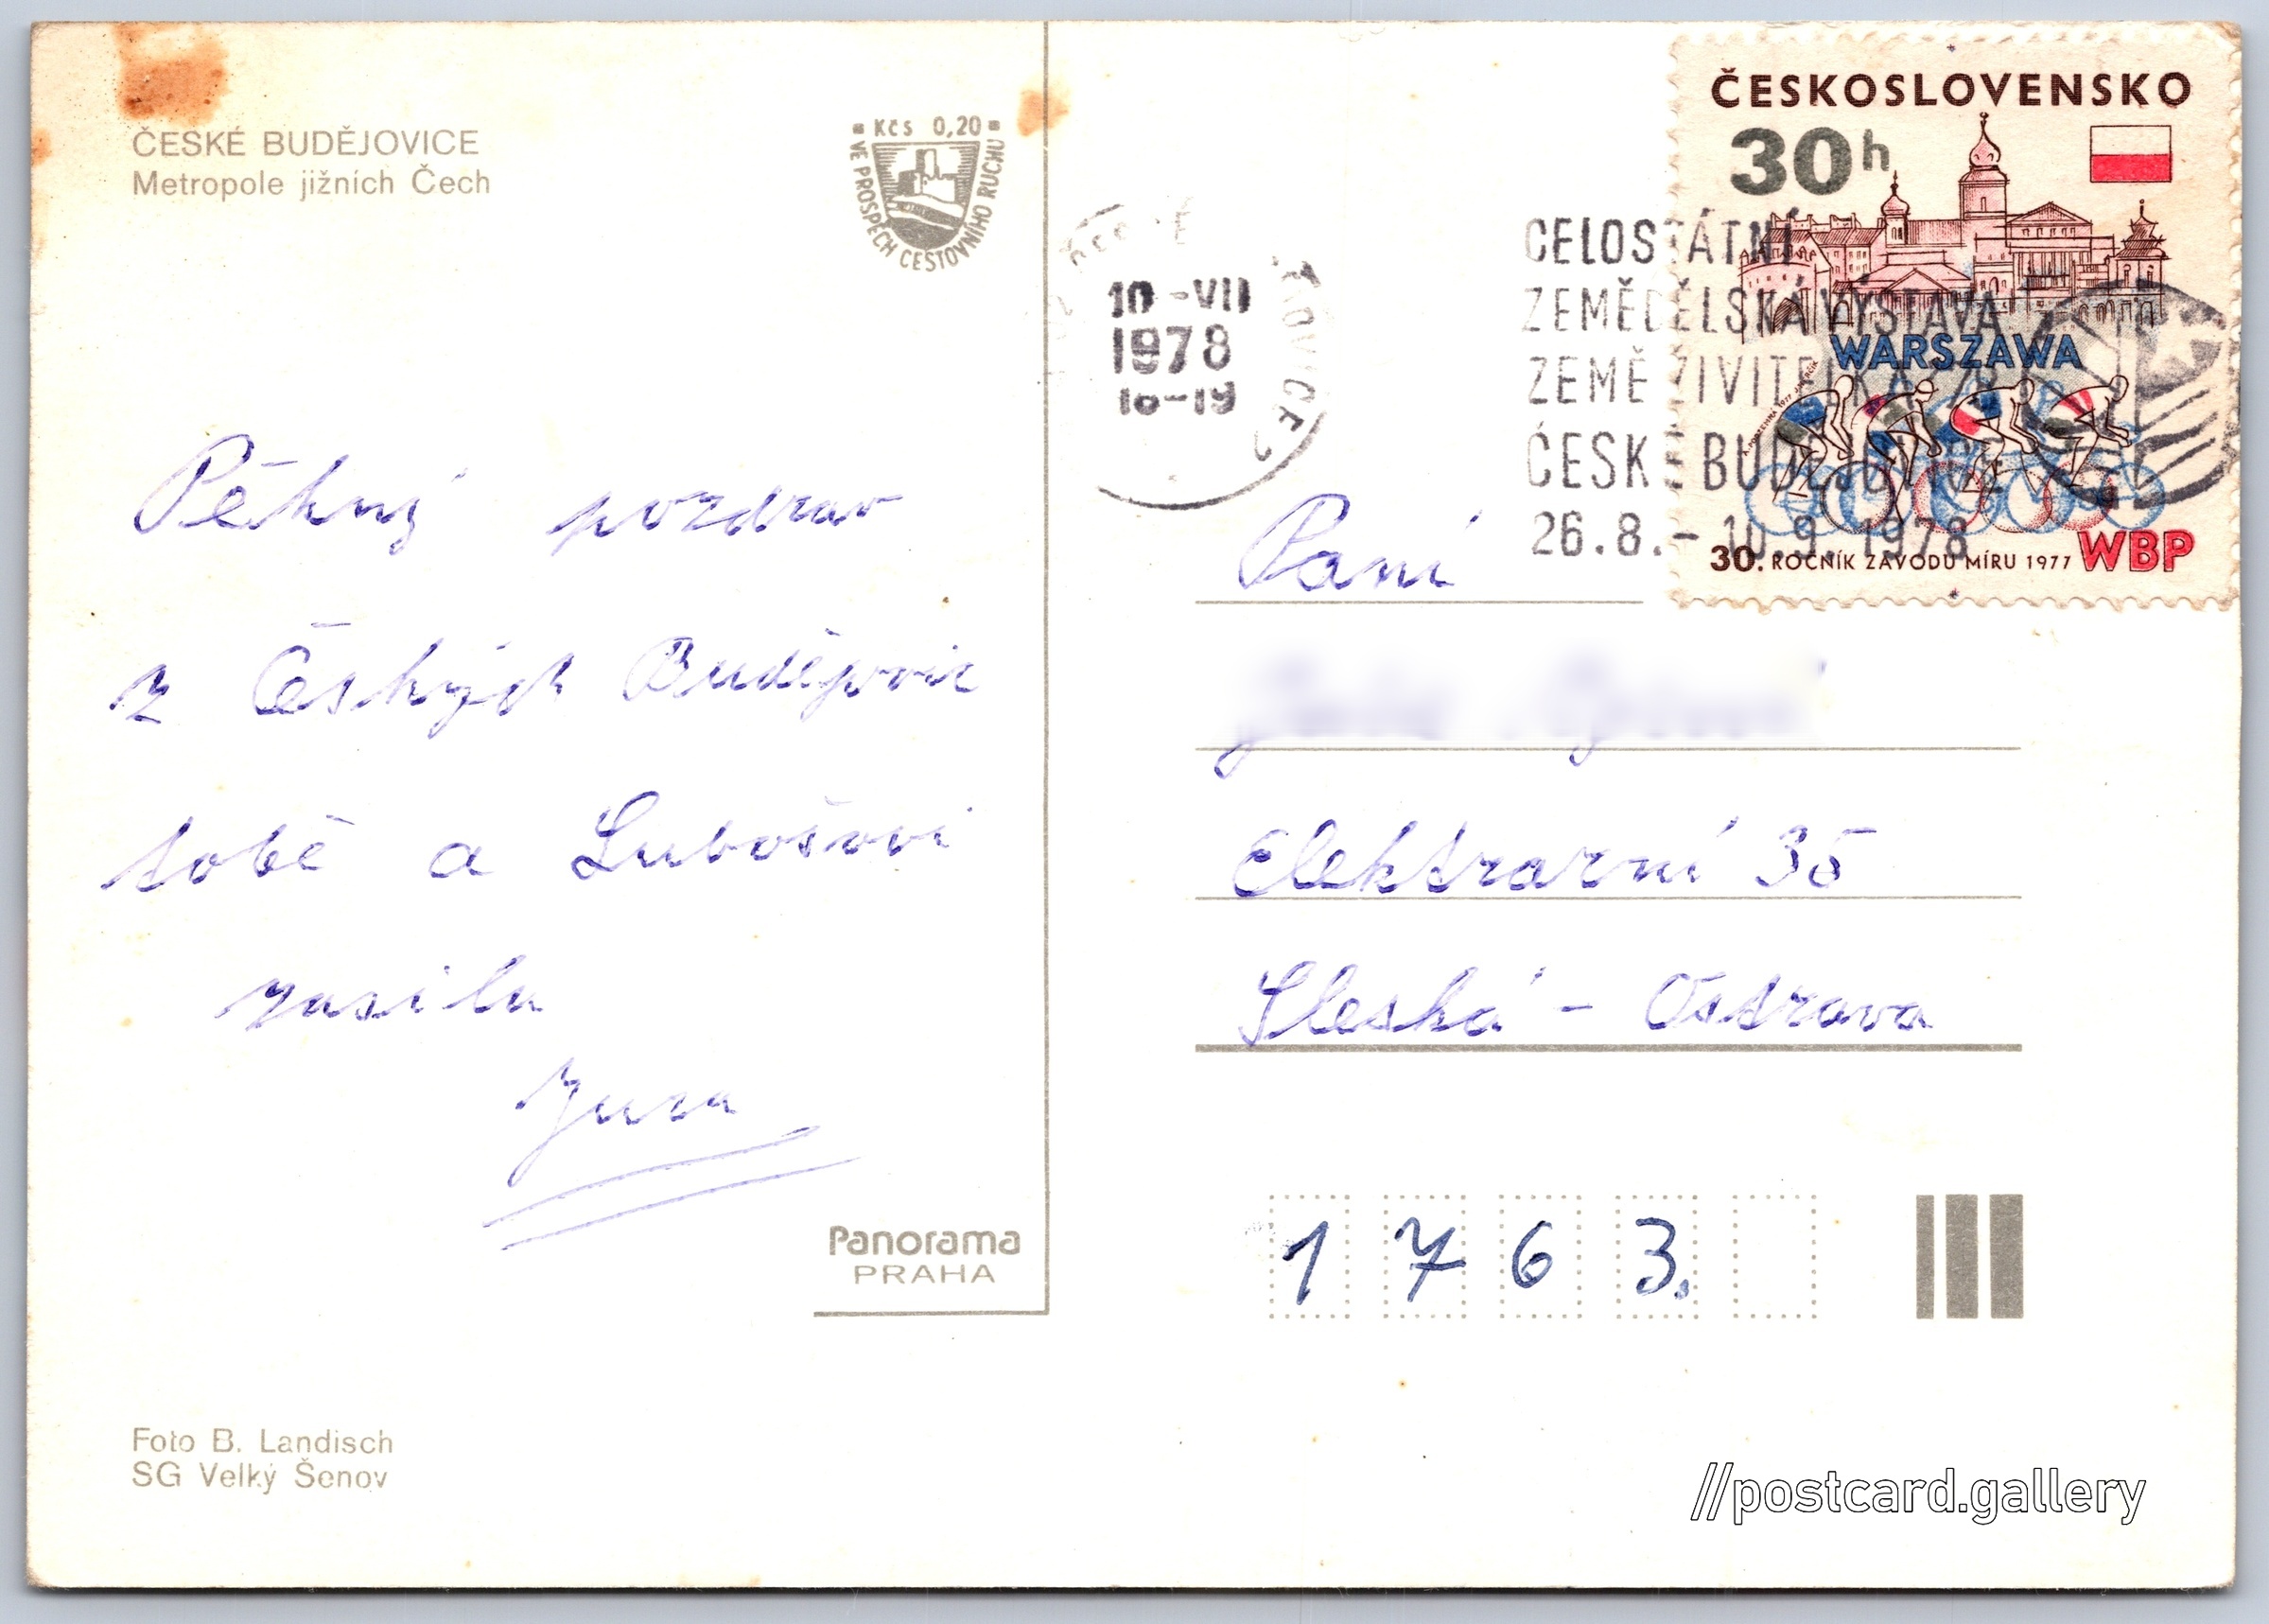 ČESKÉ BUDĚJOVICE
Metropole jižních Čech
Kčs 0,20
VE PROSPĚCH CESTOVNÍHO RUCHU
10 -VII
1978
18-19
CELOSTÁTNÍ
ZEMĚDĚLSKÁ VÝSTAVA
ZEMĚ ŽIVITELKA 78
ČESKÉ BUDĚJOVICE
26.8.- 10.9. 1978
ČESKOSLOVENSKO
30h
WARSZAWA
30. ROČNÍK ZÁVODU MÍRU 1977 WBP
Pěkný pozdrav
z Českých Budějovic
tobě a Lubošovi
zasílá
Jura
Paní
Elektrární 35
Sleská - Ostrava
1 7 6 3.
Panorama
PRAHA
Foto B. Landisch
SG Velký Šenov
//postcard.gallery